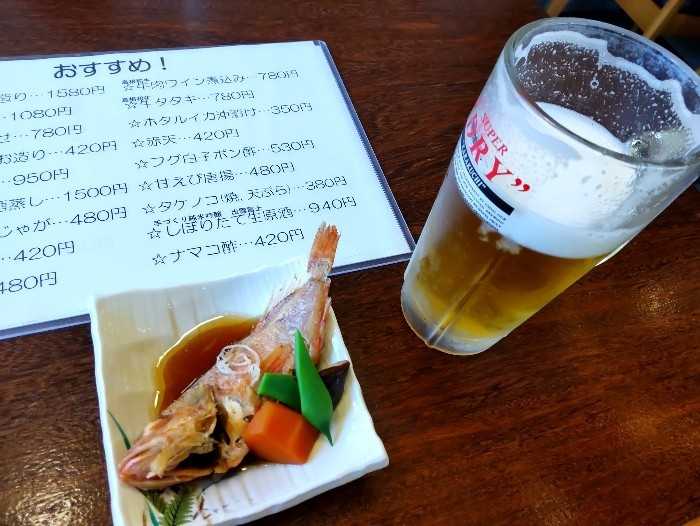 おすすめ!
造り…1580円
1080円
せ…780円
お造り…420円
…950円
蒸し…1500円
じゃが…480円
…420円
480円
☆牛肉ワイン煮込み…780円
タタキ…780円
☆ホタルイカ沖漬け…350円
☆赤天…420円
☆フグ白子ポン酢…530円
☆甘えび唐揚…480円
☆タケノコ(焼、天ぷら)…380円
☆しぼりたて生原酒…940円
☆ナマコ酢…420円
SUPER
DRY”
KARAKUCHI